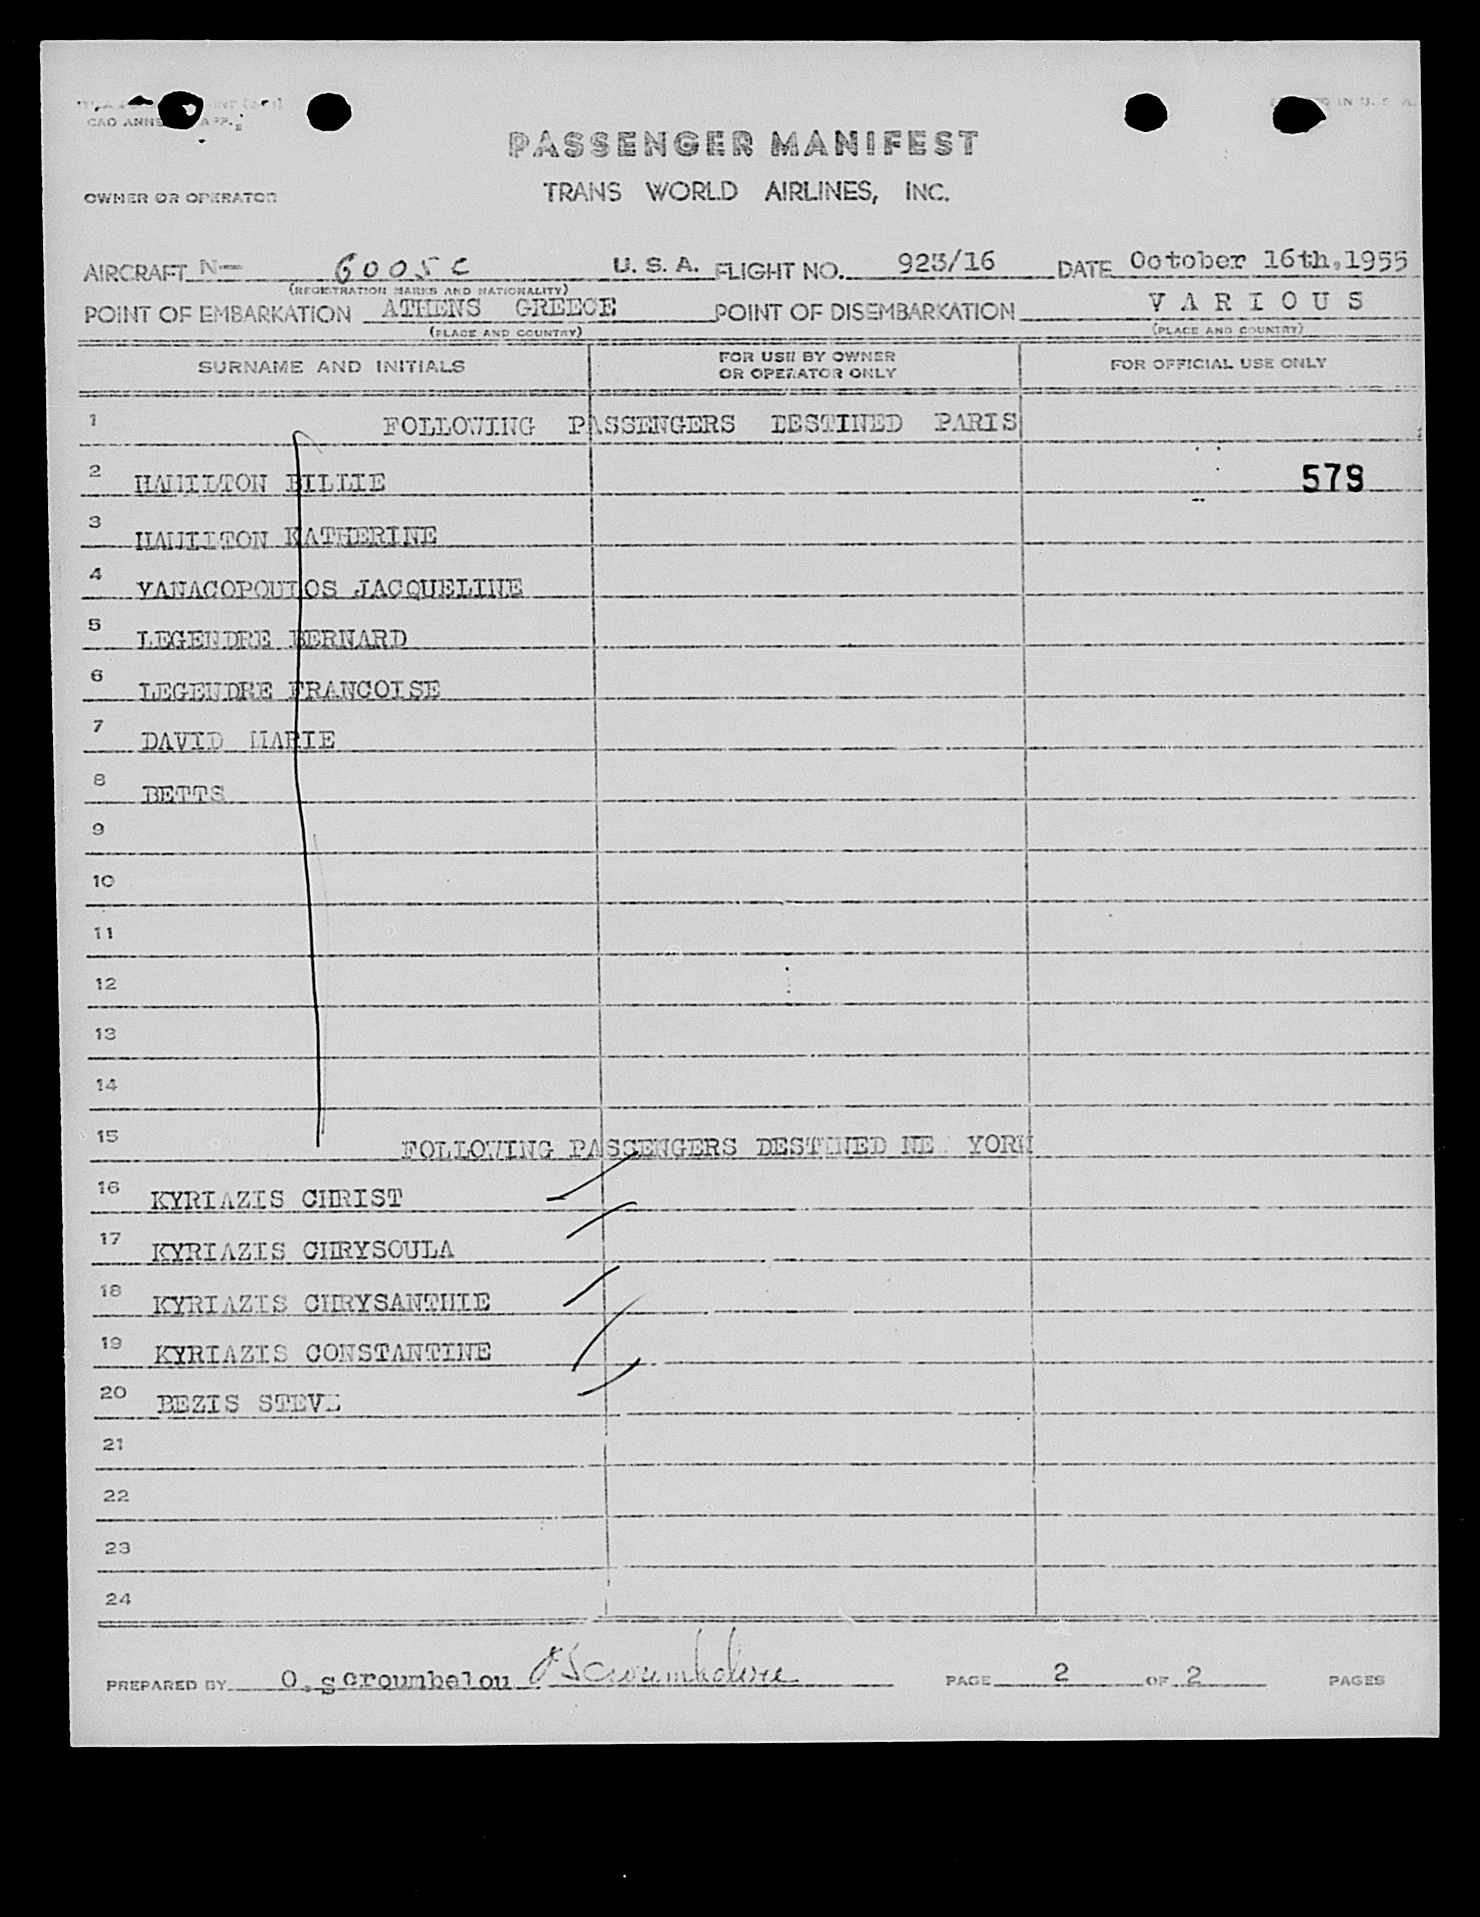 PASSENGER MANIFEST
OWNER OR OPERATOR
TRANS WORLD AIRLINES, INC.
AIRCRAFT N- 6005C U. S. A. FLIGHT NO. 923/16 DATE October 16th,1955
(REGISTRATION MARKS AND NATIONALITY)
POINT OF EMBARKATION ATHENS GREECE POINT OF DISEMBARKATION V A R I O U S
(PLACE AND COUNTRY) (PLACE AND COUNTRY)
SURNAME AND INITIALS FOR USE BY OWNER OR OPERATOR ONLY FOR OFFICIAL USE ONLY
1 FOLLOWING PASSENGERS DESTINED PARIS
2 HAMILTON BILLIE 579
3 HAMILTON KATHERINE
4 YANACOPOULOS JACQUELINE
5 LEGENDRE BERNARD
6 LEGENDRE FRANCOISE
7 DAVID MARIE
8 BETTS
9
10
11
12
13
14
15 FOLLOWING PASSENGERS DESTINED NE YORK
16 KYRIAZIS CHRIST
17 KYRIAZIS CHRYSOULA
18 KYRIAZIS CHRYSANTHIE
19 KYRIAZIS CONSTANTINE
20 BEZIS STEVE
21
22
23
24
PREPARED BY O.scroumbelou OScroumbelou PAGE 2 OF 2 PAGES